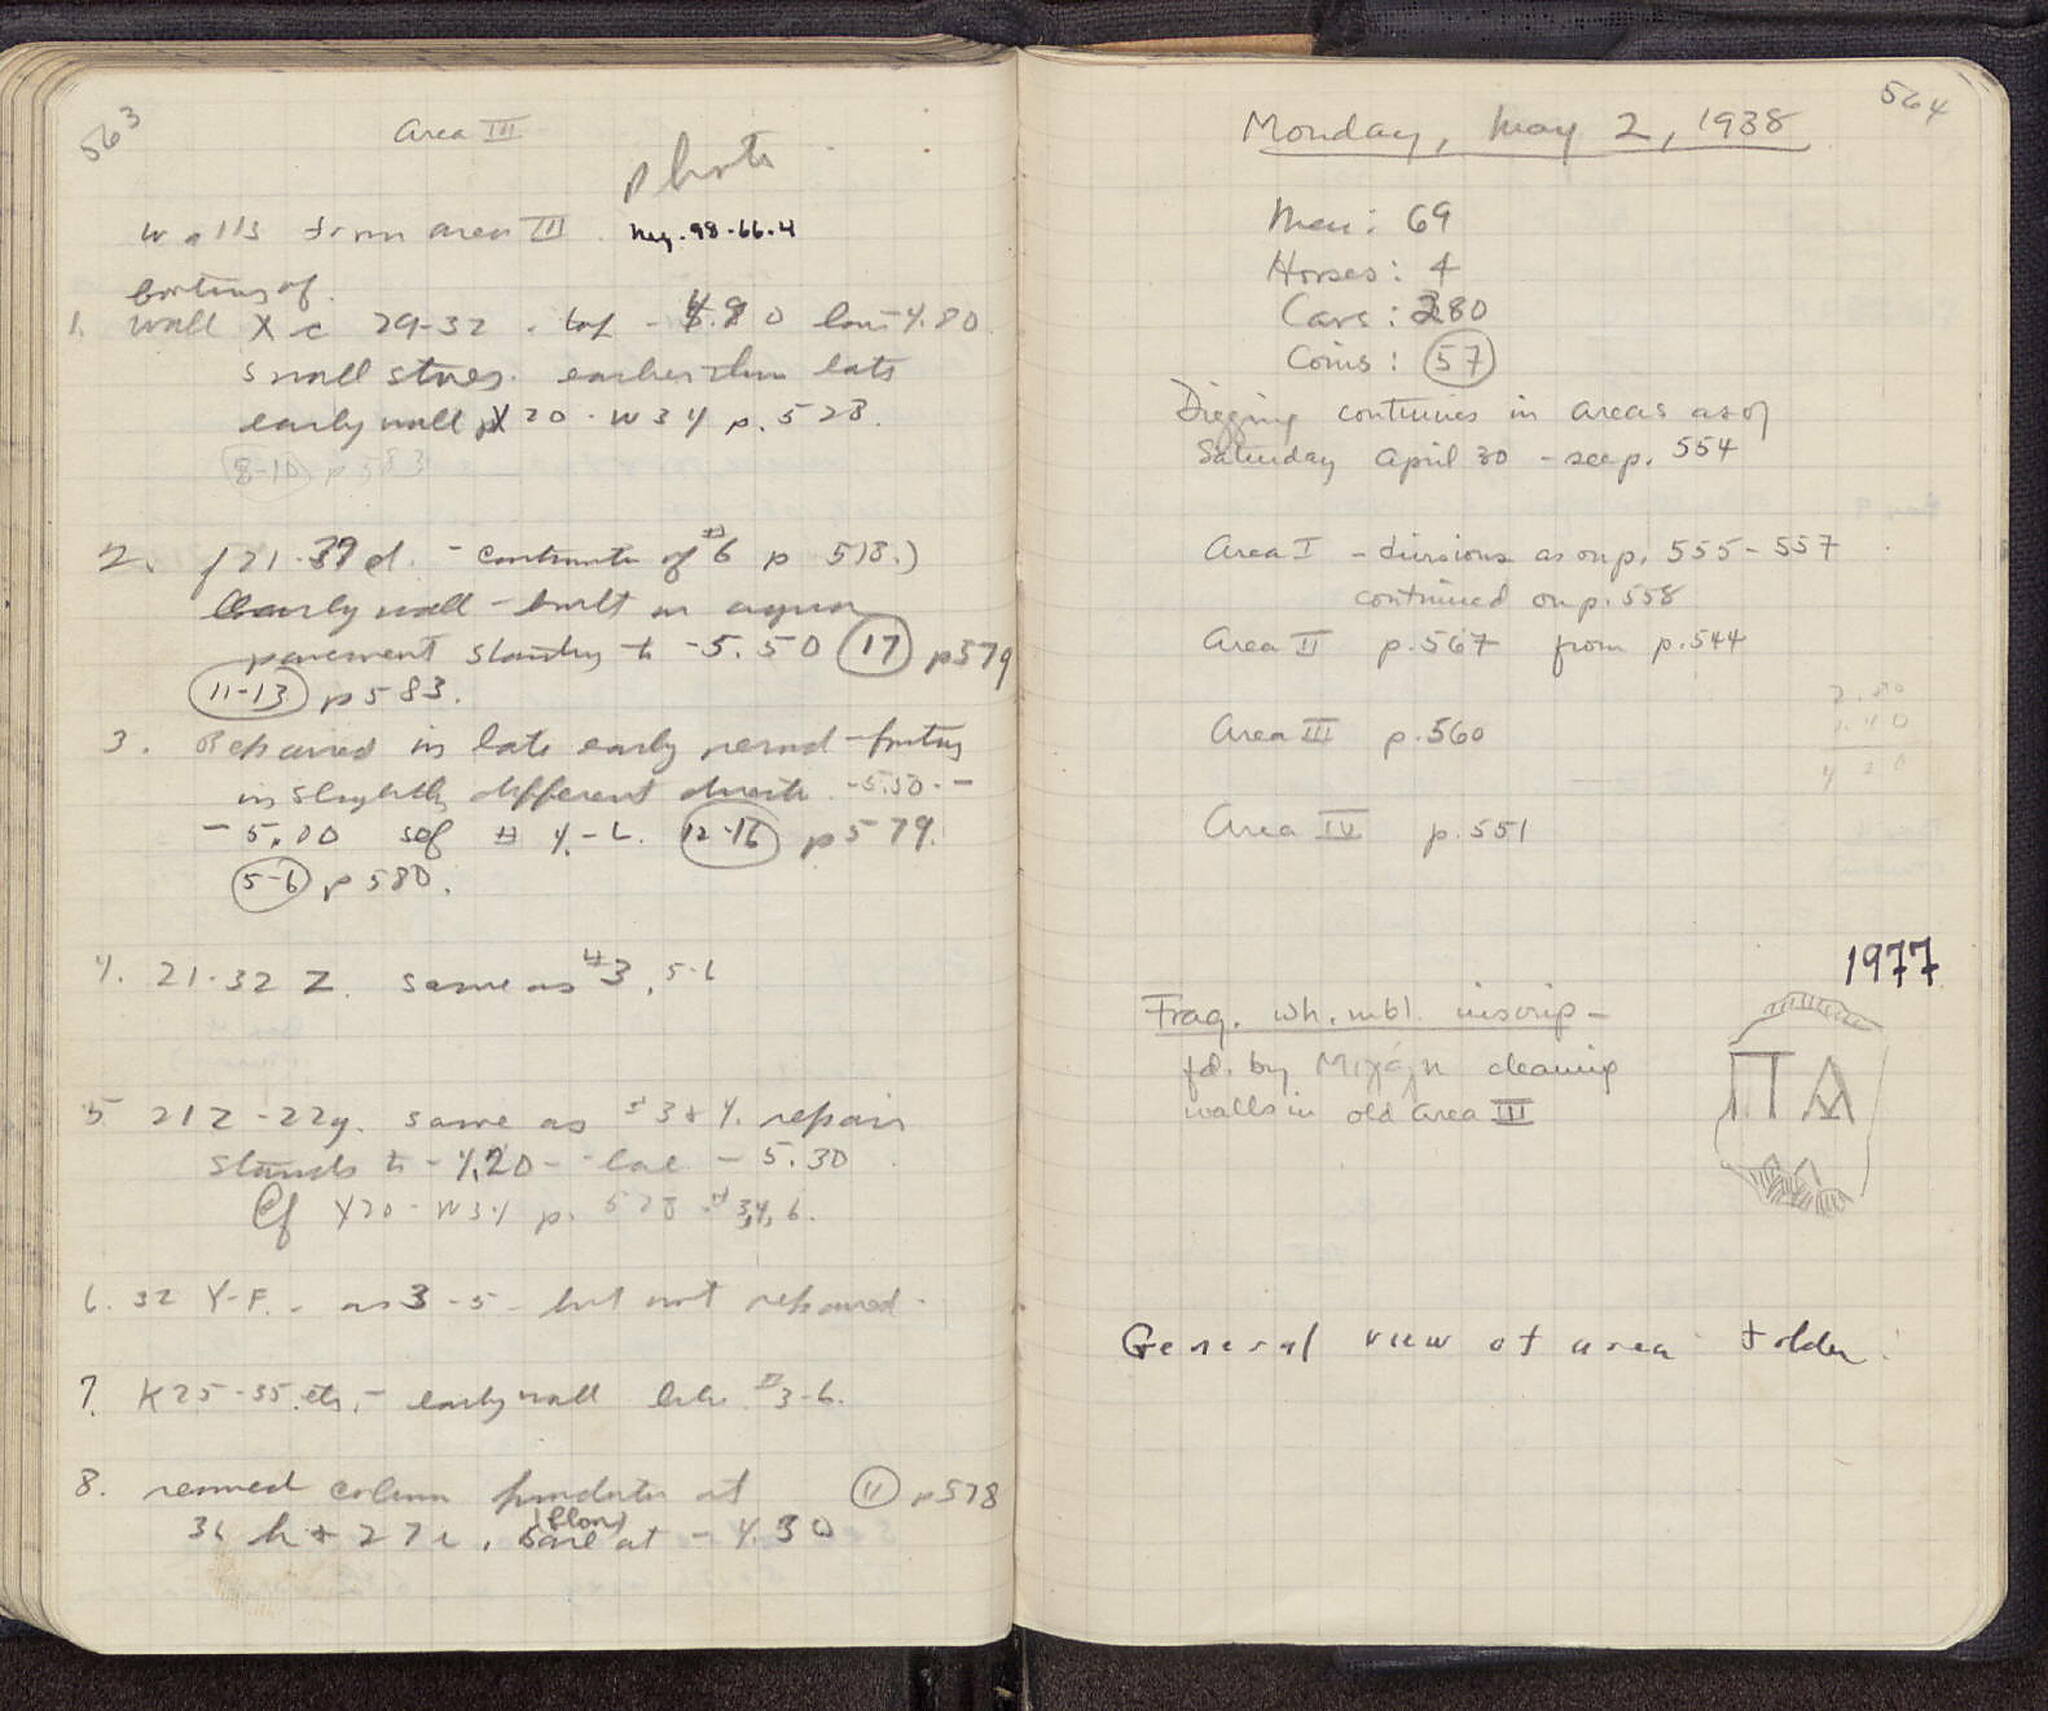 563
Area III
photo
Walls from area III. Neg. 98-66-4
bottom of
1. Wall X c 29-32 - top - 4.90 low -4.80
small stones. earlier than late
early wall X20 - W34 p. 528.
8-10 p583
2. f21-39d. - continuation of #6 p 518.)
Early wall - built in
pavement standing to -5.50 17 p579
11-13 p583.
3. Repaired in late early period - footing
in slightly different direction -5.50 - -
-5.00 #4-6. 12-16 p579.
5-6 p580.
4. 21-32 Z. same as #3, 5-6
5 21 Z - 22g. same as #3 & 4. repair
stands to -4.20 - - -5.30
Cf Y20 - W34 p. 528 #3,4, 6.
6. 32 Y-F. - as 3-5 - but not repaired -
7. K25-35. etc. - early wall like #3-6.
8. removed column foundation at 11 p578
36 h + 27 i, (blow) base at -4.30
564
Monday, May 2, 1938
Men: 69
Horses: 4
Cars: 380
Coins: 57
Digging continues in areas as of
Saturday April 30 - see p. 554
Area I - divisions as on p. 555-557
continued on p. 558
Area II p. 567 from p. 544
Area III p. 560
Area IV p. 551
1977
Frag. wh. mbl. inscrip -
fd. by cleaning
walls in old area III
ΠΑ
General view of area folder.